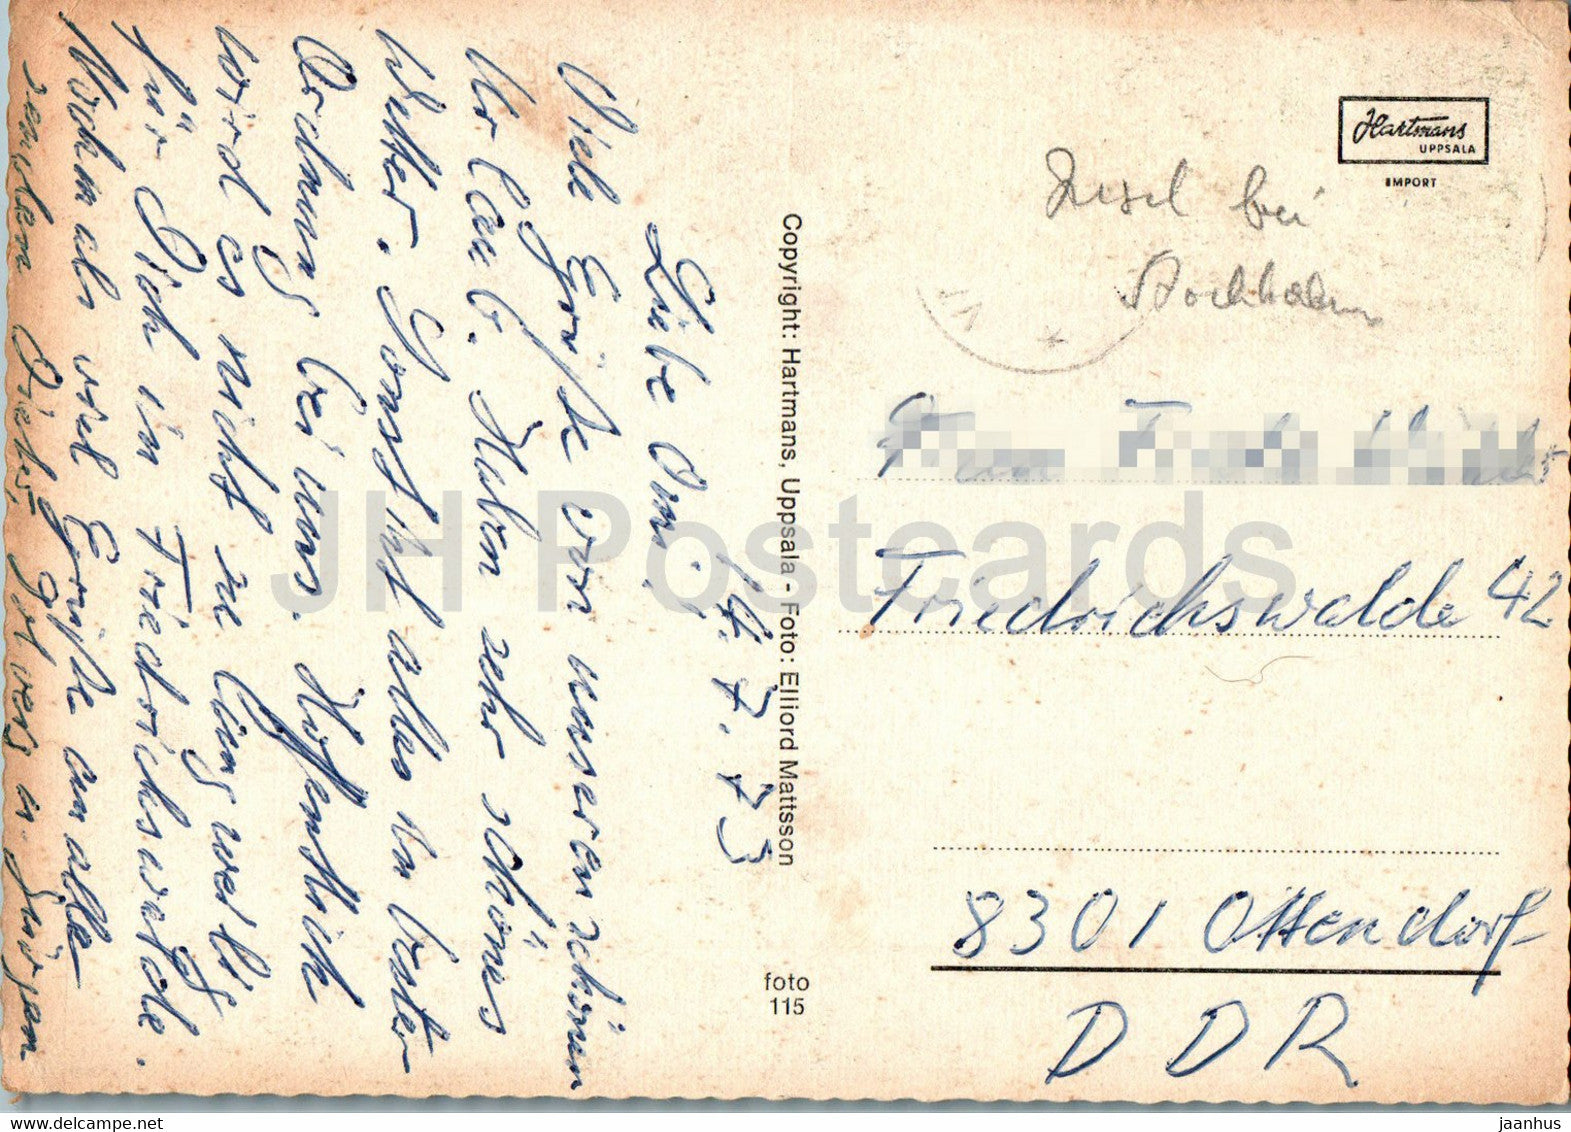 14.7.73
Liebe Omi,
Viele Grüße von unserem schönen
Urlaub. Haben sehr schönes
Wetter. Sonst ist alles in bester
Ordnung bei uns. Hoffentlich
wird es nicht zu langweilig
für Dich in Friedrichswalde.
Nochmals viel Grüße an alle
senden Dieter, Git
Copyright: Hartmans, Uppsala - Foto: Elliord Mattsson
foto
115
Hartmans
UPPSALA
IMPORT
Insel bei
Stockholm
Friedrichswalde 42
8301 Ottendorf
DDR
JH Postcards
www.delcampe.net
jaanhus